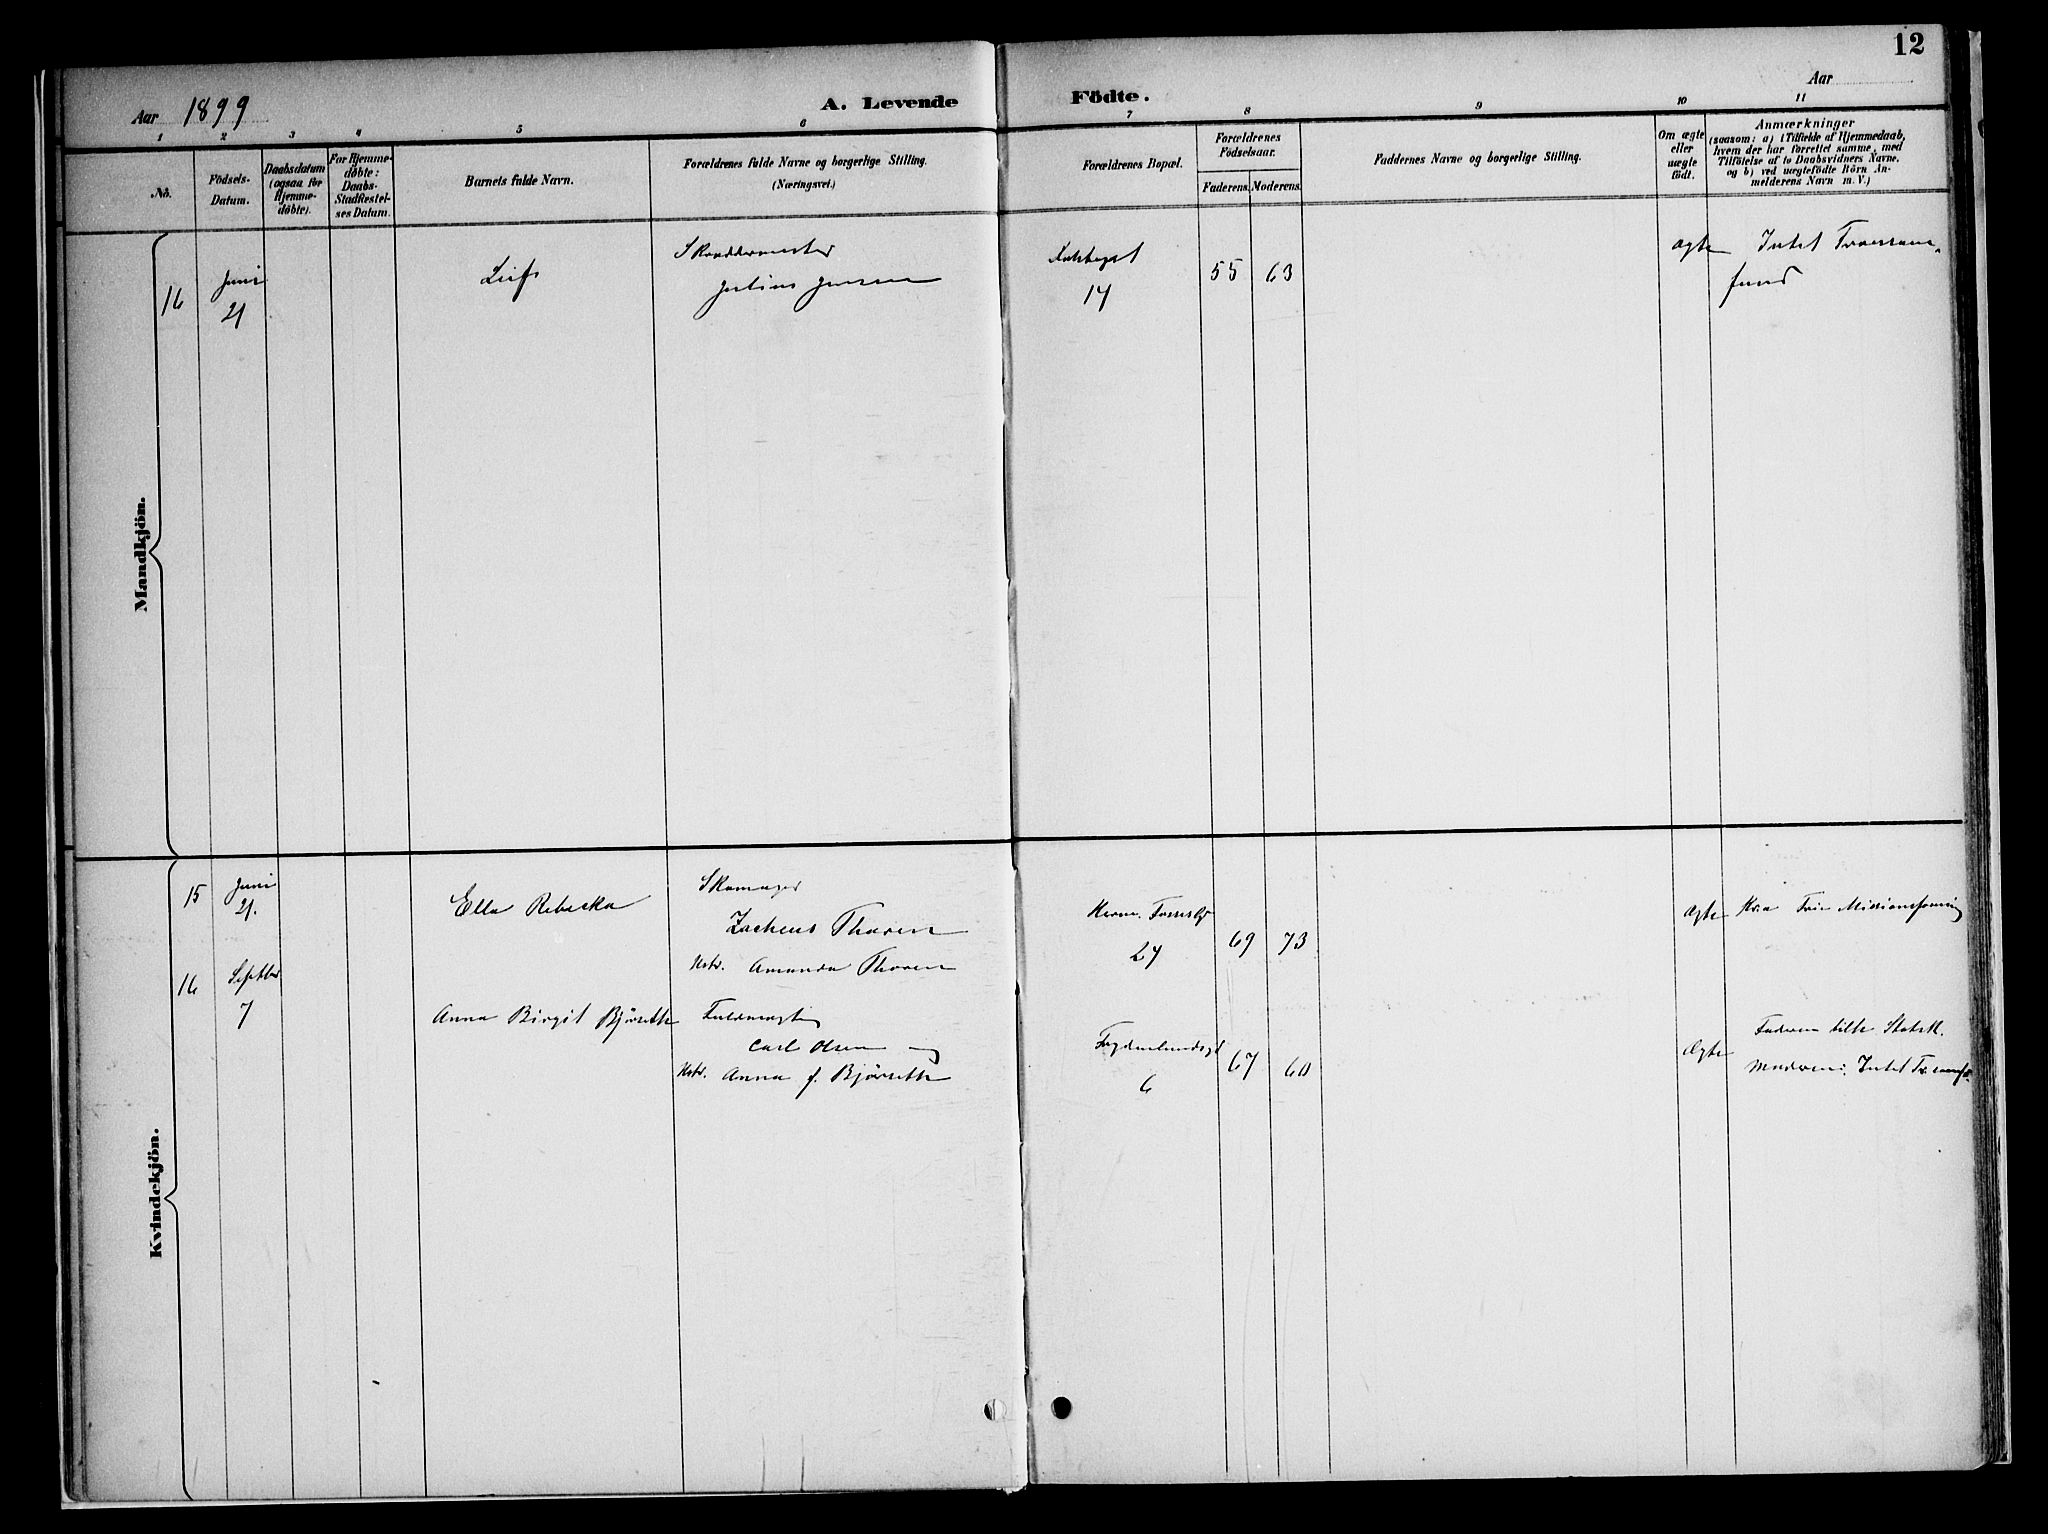 12
Aar 1899
A. Levende Födte.
Aar
1 2 3 4 5 6 7 8 9 10 11
No.
Födsels-
Datum.
Daabsdatum
(ogsaa för
Hjemme-
döbte).
For Hjemme-
döbte:
Daabs-
Stadfestel-
ses Datum.
Barnets fulde Navn.
Forældrenes fulde Navne og borgerlige Stilling.
(Næringsvei.)
Forældrenes Bopæl.
Forældrenes
Födselsaar.
Faderens. Moderens.
Faddernes Navne og borgerlige Stilling.
Om ægte
eller
uægte
födt.
Anmærkninger
(saasom: a) i Tilfælde af Hjemmedaab,
hvem der har forrettet samme, med
Tilföielse af to Daabsvidners Navne.
og b) ved uægtefödte Börn An-
melderens Navn m. V.)
Mandkjön.
16
Juni
21
Leif
Skræddermester
Julius Jensen
14
55 63
ægte
Intet Troessam-
fund
Kvindekjön.
15
Juni
21.
Ella Rebecka
Skomager
Zacheus Thoren
Hstr. Amanda Thoren
24
69 73
ægte
Fri Missionsforening
16
Septbr
7
Anna Birgit Björseth
Fuldmægtig
Carl Olsen og
Hstr. Anna f. Björseth
6
67 60
Ægte
Faderen tilh. Statsk.
Moderen: Intet Troessamf.